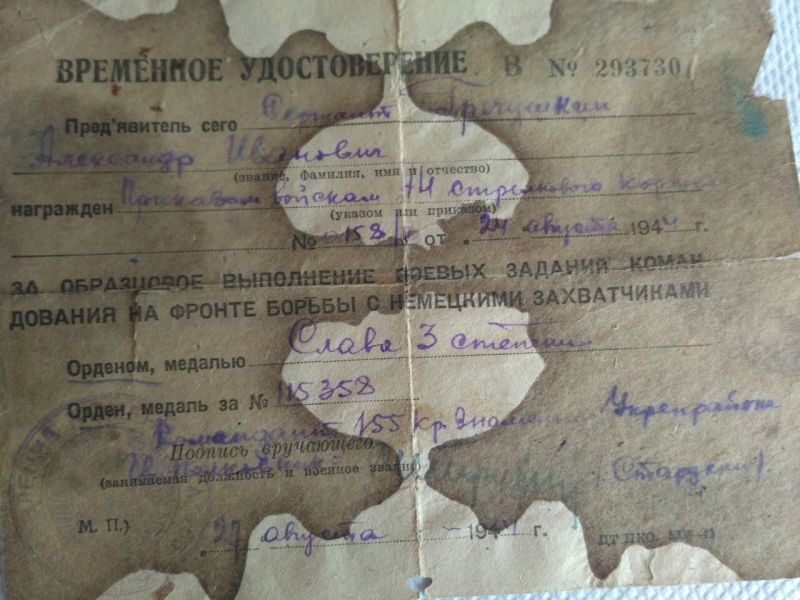 ВРЕМЕННОЕ УДОСТОВЕРЕНИЕ В № 293730
Пред'явитель сего Сержант Гречушкин
Александр Иванович
(звание, фамилия, имя и отчество)
награжден Приказом войскам 74 стрелкового корпуса
(указом или приказом)
№ 158/н от „24 августа 1944 г.
ЗА ОБРАЗЦОВОЕ ВЫПОЛНЕНИЕ БОЕВЫХ ЗАДАНИЙ КОМАН
ДОВАНИЯ НА ФРОНТЕ БОРЬБЫ С НЕМЕЦКИМИ ЗАХВАТЧИКАМИ
Орденом, медалью Слава 3 степени
Орден, медаль за № 115358
Комендант 155 Кр. Знаменного Укрепрайона
Подпись вручающего
(занимаемая должность и военное звание)
М. П.) „27 августа 1944 г. ДТ ПКО.